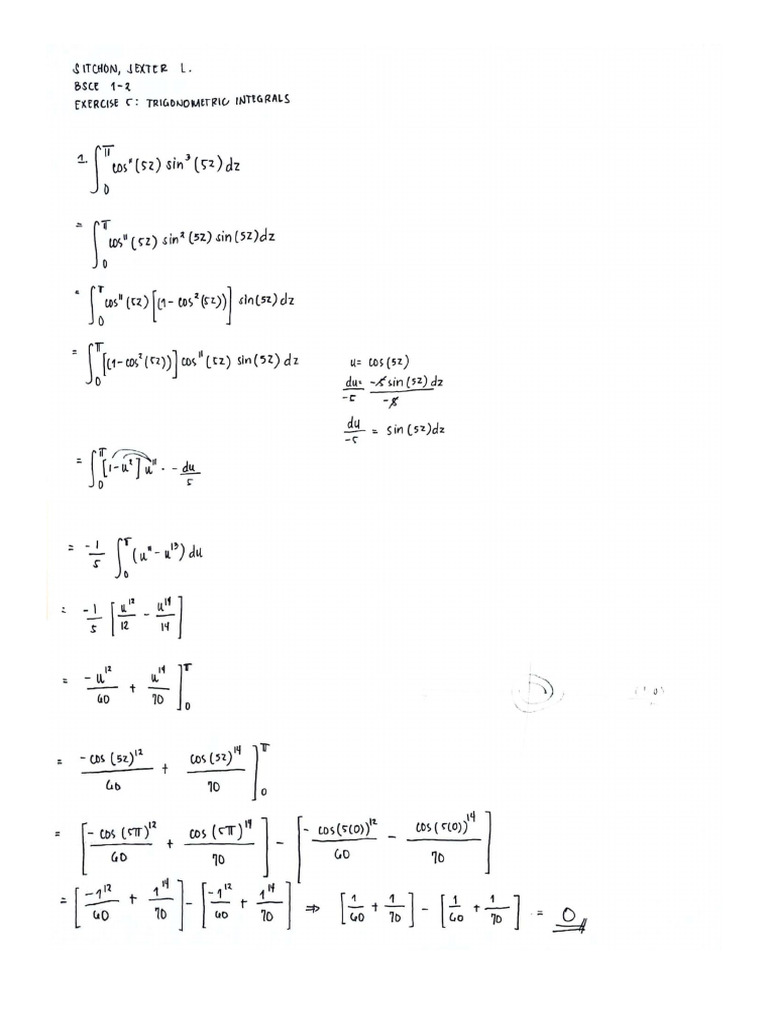 SITCHON, JEXTER L.
BSCE 1-2
EXERCISE 5: TRIGONOMETRIC INTEGRALS
1. ∫₀^π cos¹¹(5z) sin³(5z) dz
= ∫₀^π cos¹¹(5z) sin²(5z) sin(5z) dz
= ∫₀^π cos¹¹(5z) [(1 - cos²(5z))] sin(5z) dz
= ∫₀^π [(1 - cos²(5z))] cos¹¹(5z) sin(5z) dz
u = cos(5z)
du/-5 = -5 sin(5z) dz/-5
du/-5 = sin(5z) dz
= ∫₀^π [1 - u²] u¹¹ · - du/5
= -1/5 ∫₀^π (u¹¹ - u¹³) du
= -1/5 [u¹²/12 - u¹⁴/14]
= -u¹²/60 + u¹⁴/70 ]₀^π
= -cos(5z)¹²/60 + cos(5z)¹⁴/70 ]₀^π
= [-cos(5π)¹²/60 + cos(5π)¹⁴/70] - [-cos(5(0))¹²/60 - cos(5(0))¹⁴/70]
= [-1¹²/60 + 1¹⁴/70] - [-1¹²/60 + 1¹⁴/70] ⇒ [1/60 + 1/70] - [1/60 + 1/70] = 0